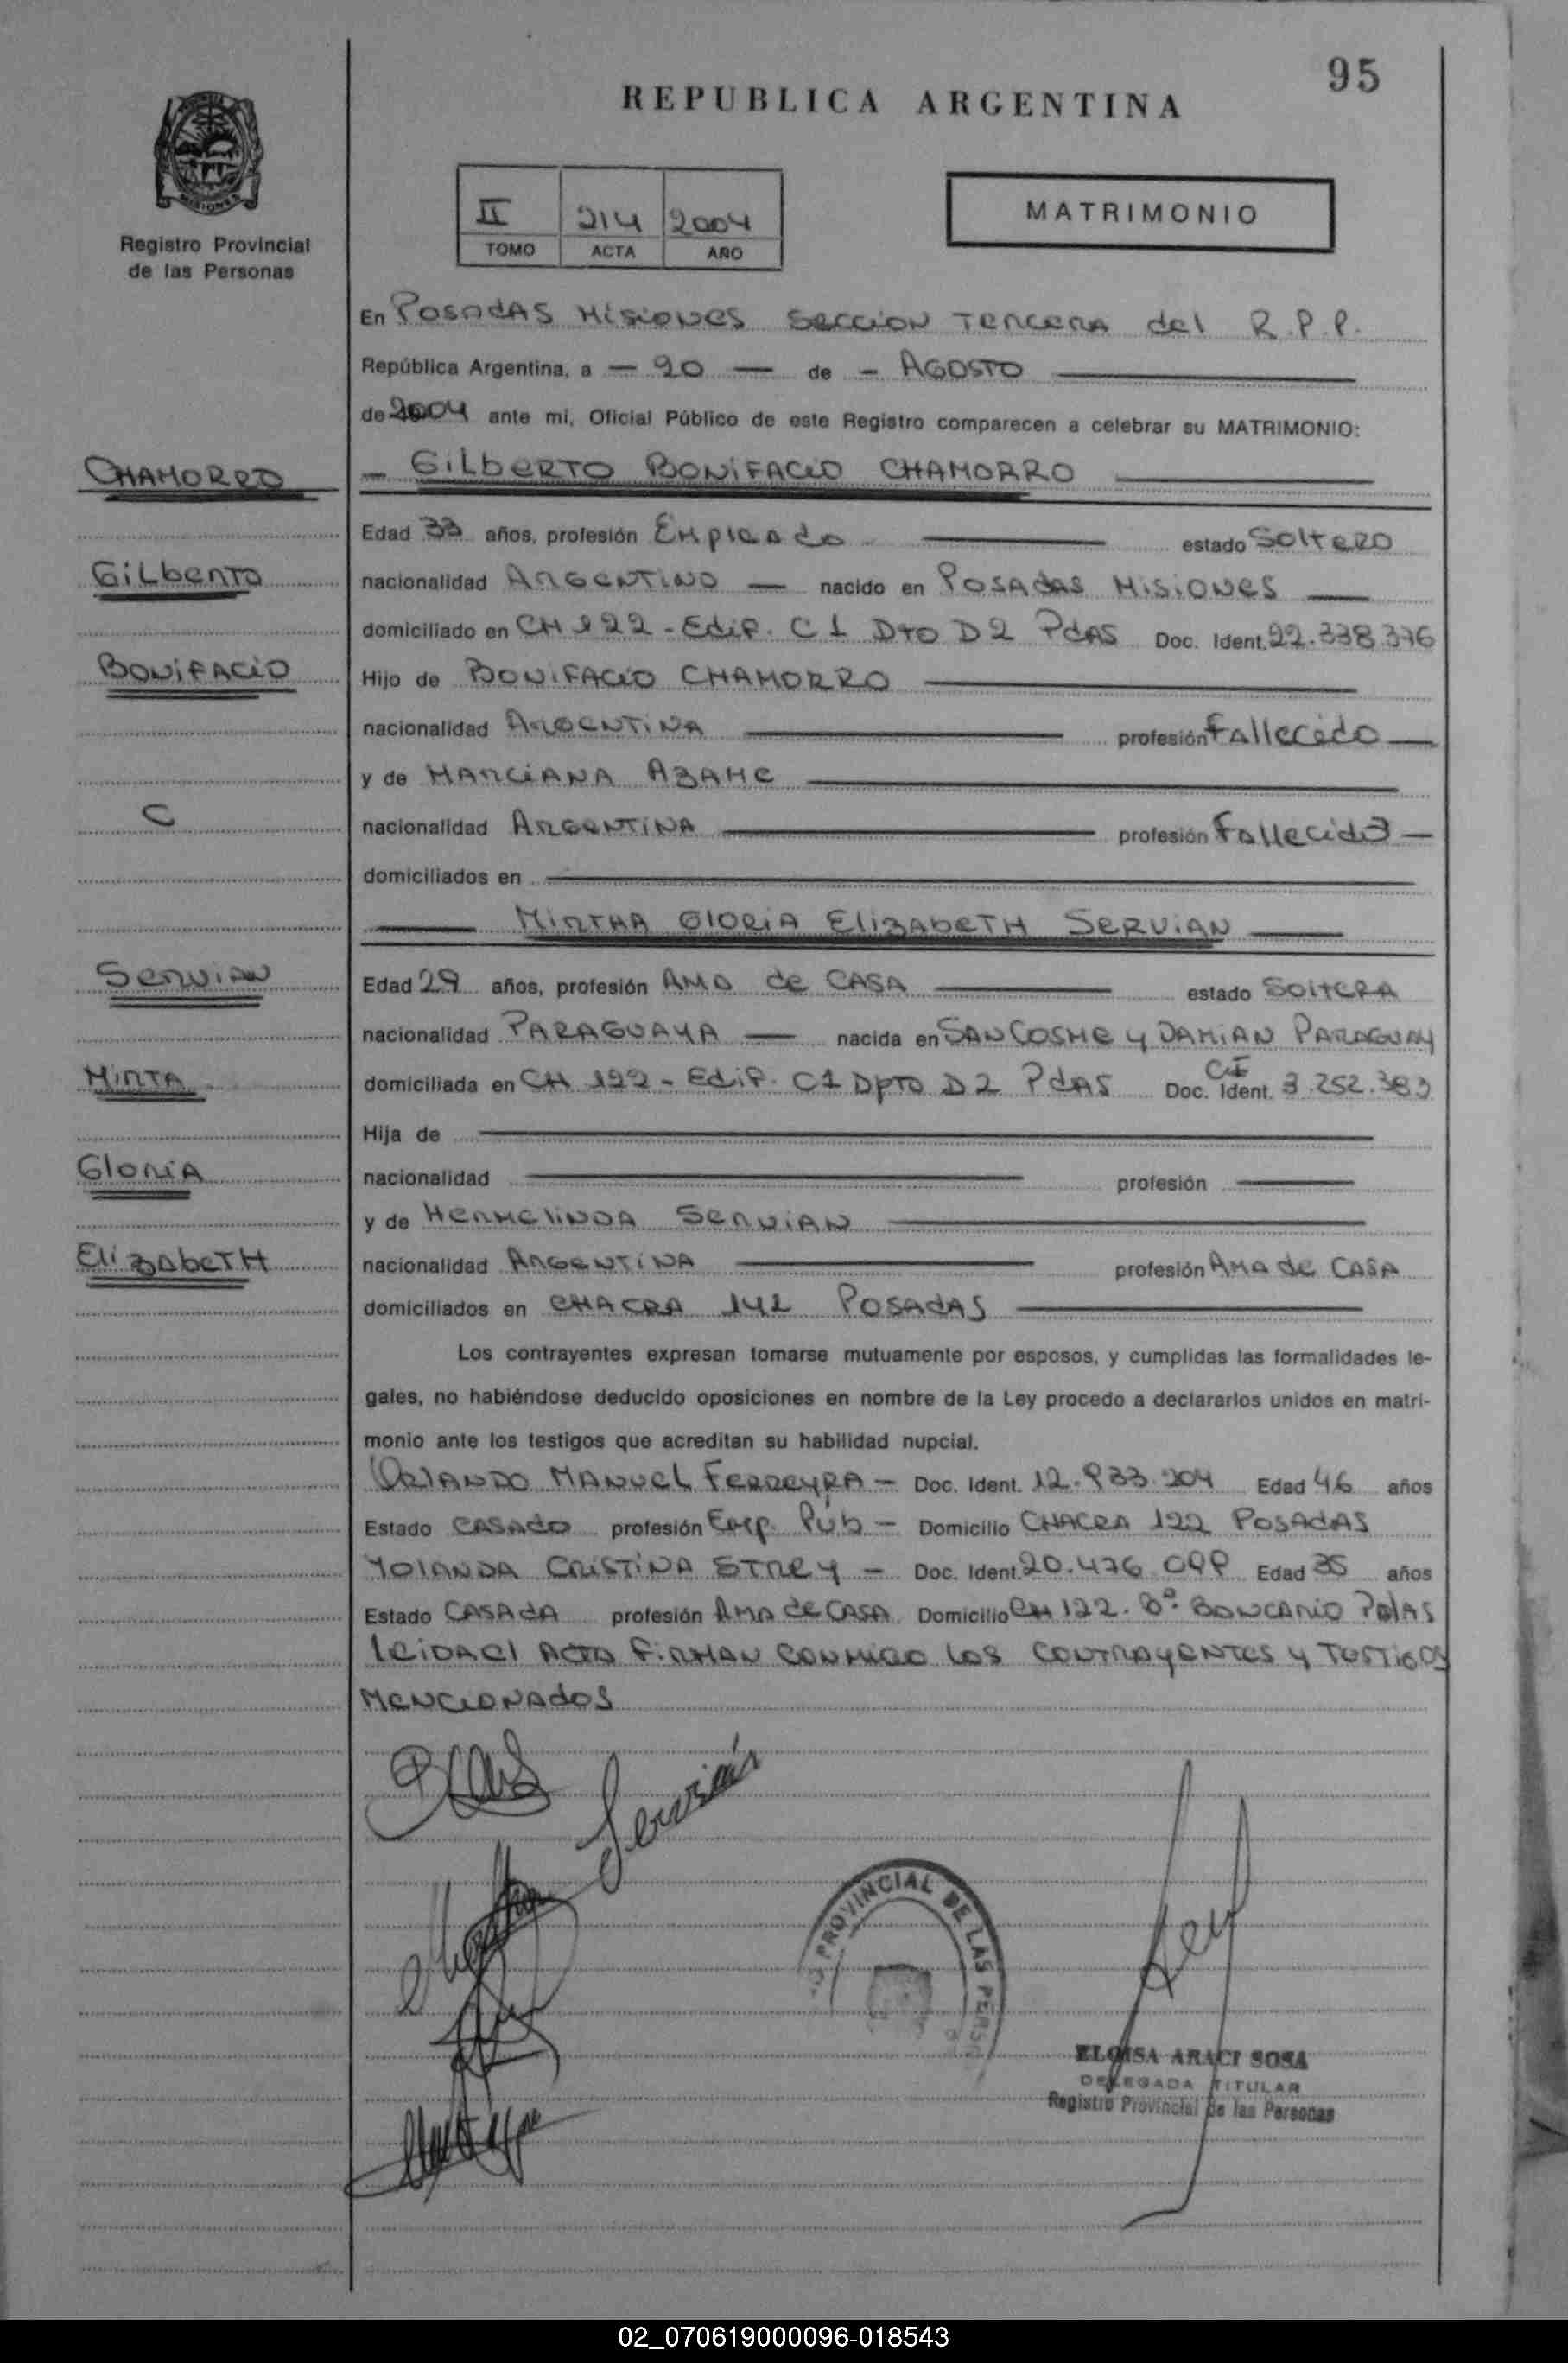 95
REPUBLICA ARGENTINA
MISIONES
Registro Provincial
de las Personas
II 214 2004
TOMO ACTA AÑO
MATRIMONIO
En POSADAS MISIONES SECCION TERCERA del R.P.P.
República Argentina, a — 20 — de - AGOSTO
de 2004 ante mi, Oficial Público de este Registro comparecen a celebrar su MATRIMONIO:
CHAMORRO
- GILBERTO BONIFACIO CHAMORRO
Edad 33 años, profesión Empleado estado SOLTERO
GILBERTO
nacionalidad ARGENTINO — nacido en POSADAS MISIONES —
domiciliado en CH 122 - Edif. C1 DTO D2 PdAS Doc. Ident. 22.338.376
BONIFACIO
Hijo de BONIFACIO CHAMORRO
nacionalidad ARGENTINA profesión Fallecido —
y de MARCIANA AZAME
C
nacionalidad ARGENTINA profesión Fallecida —
domiciliados en
MIRTHA GLORIA ELIZABETH SERVIAN
SERVIAN
Edad 29 años, profesión AMA de CASA estado SOLTERA
nacionalidad PARAGUAYA — nacida en SAN COSME y DAMIAN PARAGUAY
MIRTA
domiciliada en CH 122 - Edif. C1 DpTO D2 PdAS Doc. Ident. CI 3.252.383
Hija de
GLORIA
nacionalidad profesión
y de HERMELINDA SERVIAN
ELIZABETH
nacionalidad ARGENTINA profesión AMA de CASA
domiciliados en CHACRA 142 POSADAS
Los contrayentes expresan tomarse mutuamente por esposos, y cumplidas las formalidades le-
gales, no habiéndose deducido oposiciones en nombre de la Ley procedo a declararlos unidos en matri-
monio ante los testigos que acreditan su habilidad nupcial.
ORLANDO MANUEL FERREYRA - Doc. Ident. 12.933.204 Edad 46 años
Estado CASADO profesión Emp. Púb - Domicilio CHACRA 122 POSADAS
YOLANDA CRISTINA STREY - Doc. Ident. 20.476.099 Edad 35 años
Estado CASADA profesión AMA de CASA Domicilio CH 122. Bº BANCARIO PdAS
LEIDA el ACTA FIRMAN CONMIGO LOS CONTRAYENTES y TESTIGOS
MENCIONADOS
Servián
PROVINCIAL DE LAS PERSO
ELOISA ARACI SOSA
DELEGADA TITULAR
Registro Provincial de las Personas
02_070619000096-018543